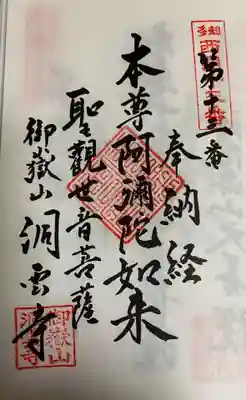 第十三番
奉納経
本尊阿彌陀如来
聖觀世音菩薩
御嶽山洞雲寺
御嶽山